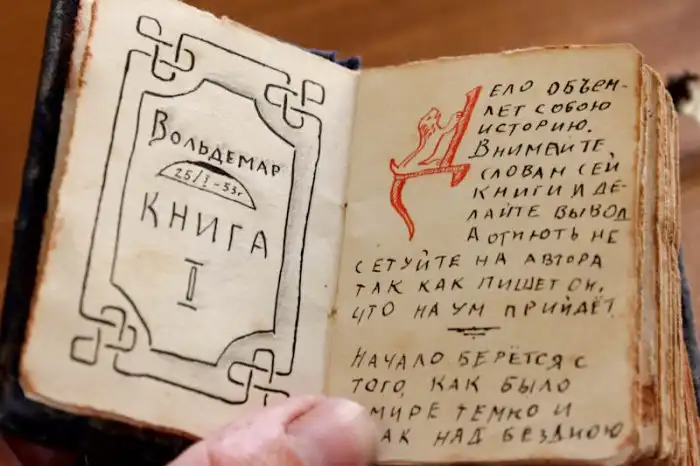 Вольдемар
25/I-53г
КНИГА
I
Дело объем-
лет собою
историю.
Внимайте
словам сей
книги и де-
лайте вывод
а отнють не
сетуйте на автора
так как пишет он,
что на ум прийдёт
Начало берётся с
того, как было
мире темно и
над бездною